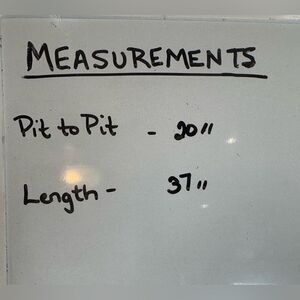 MEASUREMENTS
Pit to Pit - 20"
Length - 37"